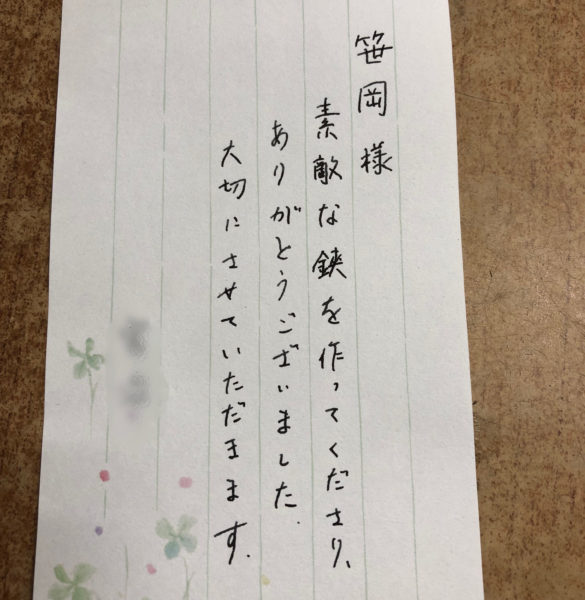 笹岡様
素敵な鋏を作ってくださり、
ありがとうございました.
大切にさせていただきます.